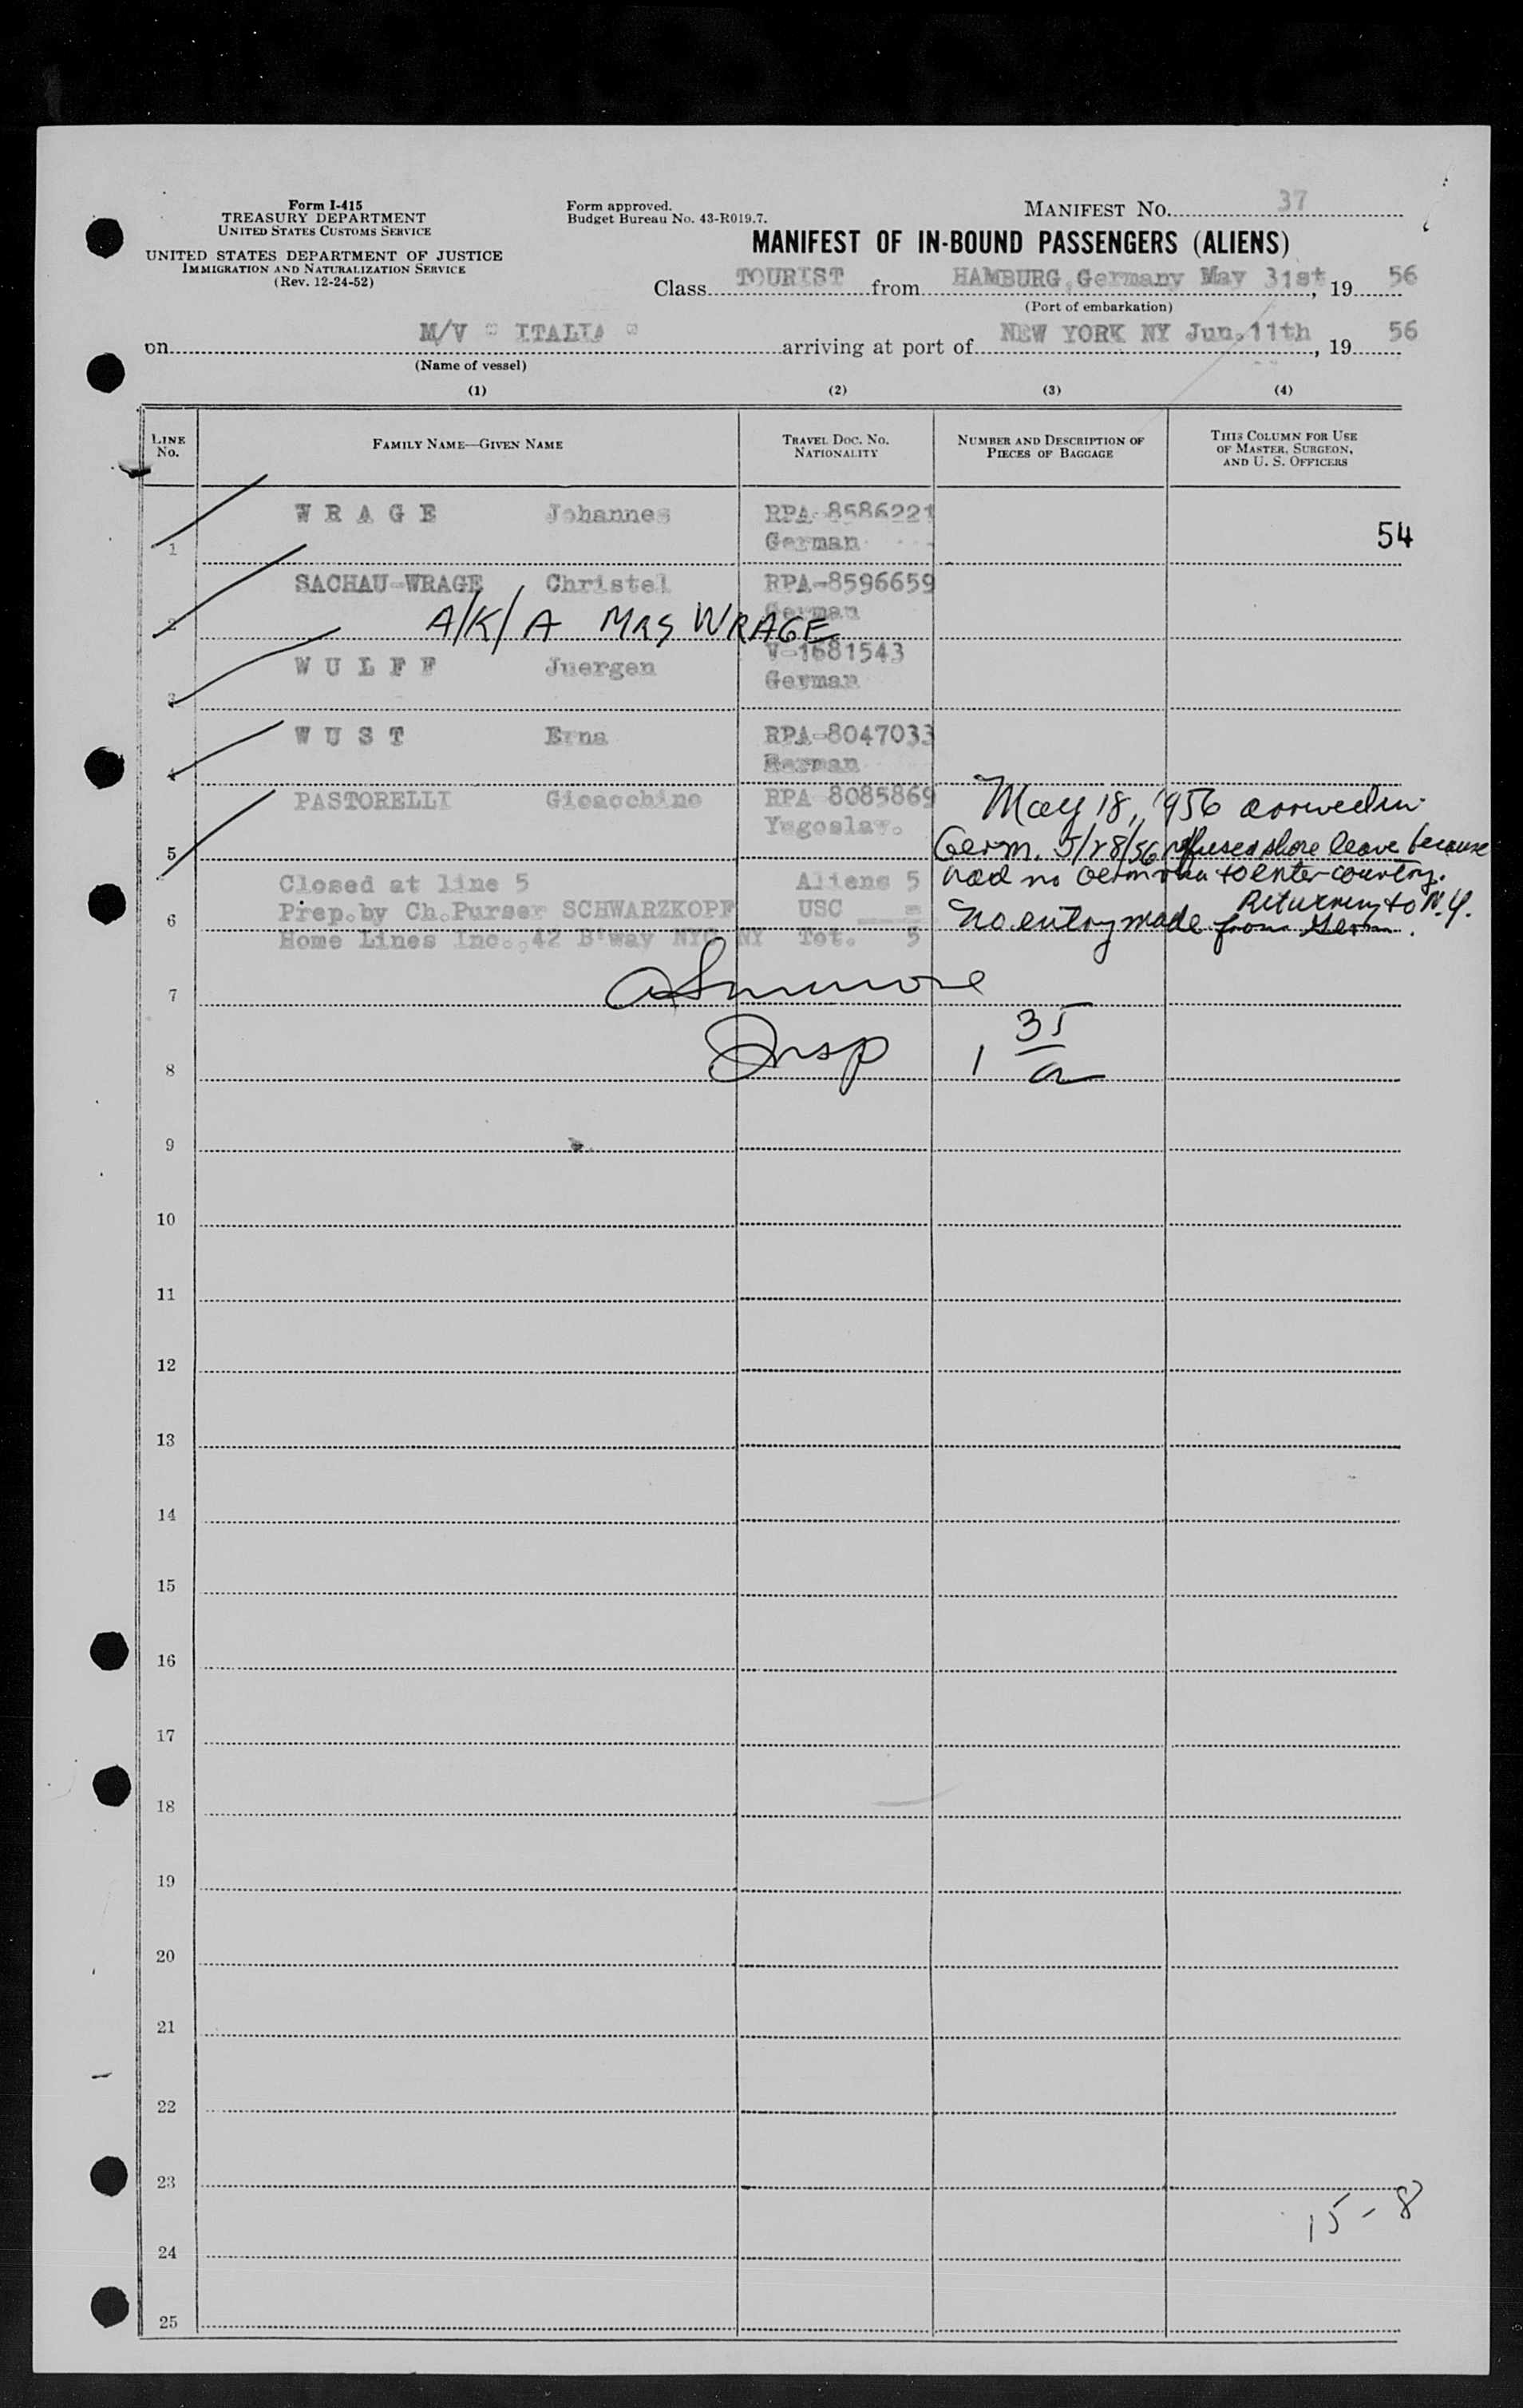 Form I-415
TREASURY DEPARTMENT
UNITED STATES CUSTOMS SERVICE
UNITED STATES DEPARTMENT OF JUSTICE
IMMIGRATION AND NATURALIZATION SERVICE
(Rev. 12-24-52)
Form approved.
Budget Bureau No. 43-R019.7.
MANIFEST NO. 37
MANIFEST OF IN-BOUND PASSENGERS (ALIENS)
Class TOURIST from HAMBURG, Germany May 31st, 19 56
(Port of embarkation)
on M/V " ITALIA " arriving at port of NEW YORK NY Jun. 11th, 19 56
(Name of vessel)
(1) (2) (3) (4)
LINE No. FAMILY NAME—GIVEN NAME TRAVEL DOC. NO. NATIONALITY NUMBER AND DESCRIPTION OF PIECES OF BAGGAGE THIS COLUMN FOR USE OF MASTER, SURGEON, AND U. S. OFFICERS
1 W R A G E Johannes RPA-8586221
German 54
2 SACHAU-WRAGE Christel RPA-8596659
German
A/K/A MRS WRAGE
3 W U L F F Juergen V-1681543
German
4 W U S T Erna RPA-8047033
German
5 PASTORELLI Gioacchino RPA 8085869
Yugoslav.
May 18, 1956 arrived in
Germ. 5/28/56 refused shore leave because
had no German visa to enter country.
Returning to N.Y.
No entry made from Germ.
Closed at line 5 Aliens 5
6 Prep.by Ch.Purser SCHWARZKOPF USC =
Home Lines Inc., 42 B'way NYC NY Tot. 5
7
8 Insp 1 35/a
9
10
11
12
13
14
15
16
17
18
19
20
21
22
23
15-8
24
25